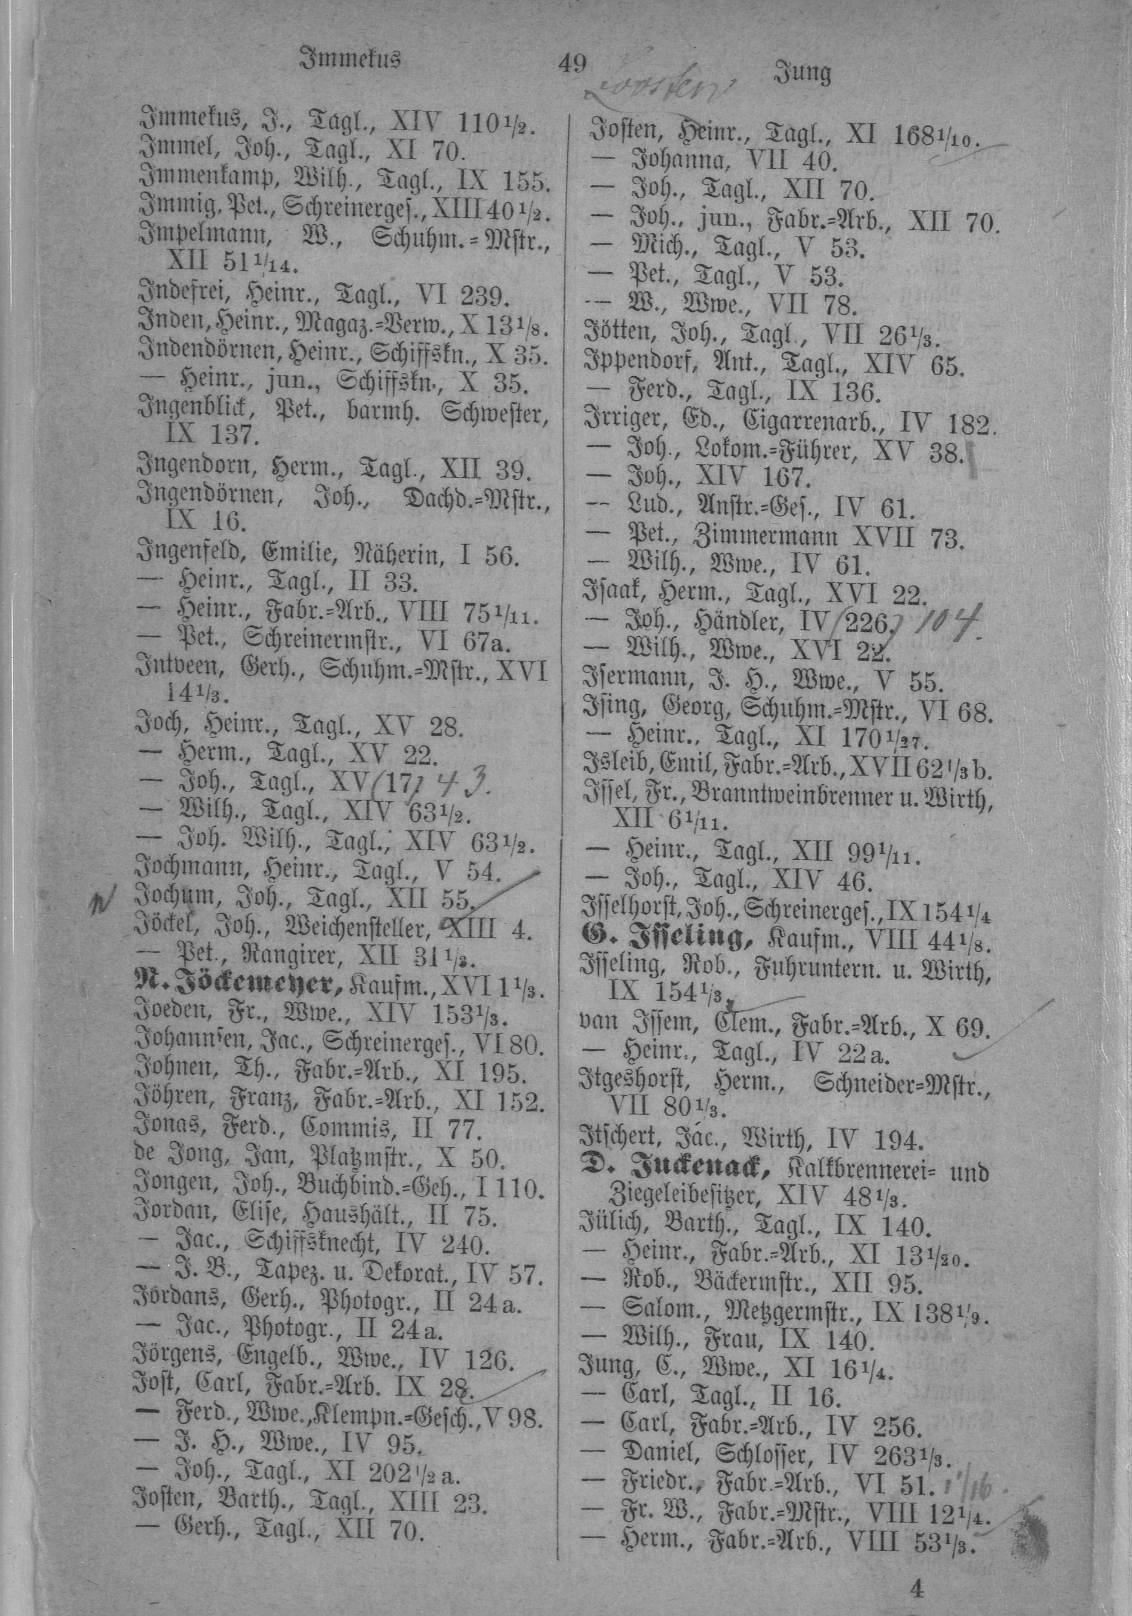 Immekus 49 Jung
Loosten
Immekus, J., Tagl., XIV 110 1/2.
Immel, Joh., Tagl., XI 70.
Immenkamp, Wilh., Tagl., IX 155.
Immig, Pet., Schreinerges., XIII 40 1/2.
Impelmann, W., Schuhm.=Mstr.,
XII 51 1/14.
Indefrei, Heinr., Tagl., VI 239.
Inden, Heinr., Magaz.=Verw., X 13 1/8.
Indendörnen, Heinr., Schiffskn., X 35.
— Heinr., jun., Schiffskn., X 35.
Ingenblick, Pet., barmh. Schwester,
IX 137.
Ingendorn, Herm., Tagl., XII 39.
Ingendörnen, Joh., Dachd.=Mstr.,
IX 16.
Ingenfeld, Emilie, Näherin, I 56.
— Heinr., Tagl., II 33.
— Heinr., Fabr.=Arb., VIII 75 1/11.
— Pet., Schreinermstr., VI 67a.
Intveen, Gerh., Schuhm.=Mstr., XVI
14 1/3.
Joch, Heinr., Tagl., XV 28.
— Herm., Tagl., XV 22.
— Joh., Tagl., XV (17) 43.
— Wilh., Tagl., XIV 63 1/2.
— Joh. Wilh., Tagl., XIV 63 1/2.
Jochmann, Heinr., Tagl., V 54.
Jochum, Joh., Tagl., XII 55.
Jöckel, Joh., Weichensteller, XIII 4.
— Pet., Rangirer, XII 31 1/2.
N. Jöckemeyer, Kaufm., XVI 1 1/3.
Joeden, Fr., Wwe., XIV 153 1/3.
Johannsen, Jac., Schreinerges., VI 80.
Johnen, Th., Fabr.=Arb., XI 195.
Jöhren, Franz, Fabr.=Arb., XI 152.
Jonas, Ferd., Commis, II 77.
de Jong, Jan, Platzmstr., X 50.
Jongen, Joh., Buchbind.=Geh., I 110.
Jordan, Elise, Haushält., II 75.
— Jac., Schiffsknecht, IV 240.
— J. B., Tapez. u. Dekorat., IV 57.
Jordans, Gerh., Photogr., II 24a.
— Jac., Photogr., II 24a.
Jörgens, Engelb., Wwe., IV 126.
Jost, Carl, Fabr.=Arb. IX 28.
— Ferd., Wwe., Klempn.=Gesch., V 98.
— J. H., Wwe., IV 95.
— Joh., Tagl., XI 202 1/2 a.
Josten, Barth., Tagl., XIII 23.
— Gerh., Tagl., XII 70.
Josten, Heinr., Tagl., XI 168 1/10.
— Johanna, VII 40.
— Joh., Tagl., XII 70.
— Joh., jun., Fabr.=Arb., XII 70.
— Mich., Tagl., V 53.
— Pet., Tagl., V 53.
— W., Wwe., VII 78.
Jötten, Joh., Tagl., VII 26 1/3.
Ippendorf, Ant., Tagl., XIV 65.
— Ferd., Tagl., IX 136.
Irriger, Ed., Cigarrenarb., IV 182.
— Joh., Lokom.=Führer, XV 38.
— Joh., XIV 167.
— Lud., Anstr.=Ges., IV 61.
— Pet., Zimmermann XVII 73.
— Wilh., Wwe., IV 61.
Isaak, Herm., Tagl., XVI 22.
— Joh., Händler, IV (226.) 104.
— Wilh., Wwe., XVI 22.
Isermann, J. H., Wwe., V 55.
Ising, Georg, Schuhm.=Mstr., VI 68.
— Heinr., Tagl., XI 170 1/27.
Isleib, Emil, Fabr.=Arb., XVII 62 1/3 b.
Issel, Fr., Branntweinbrenner u. Wirth,
XII 6 1/11.
— Heinr., Tagl., XII 99 1/11.
— Joh., Tagl., XIV 46.
Isselhorst, Joh., Schreinerges., IX 154 1/4
G. Isseling, Kaufm., VIII 44 1/8.
Isseling, Rob., Fuhruntern. u. Wirth,
IX 154 1/3.
van Issem, Clem., Fabr.=Arb., X 69.
— Heinr., Tagl., IV 22a.
Itgeshorst, Herm., Schneider=Mstr.,
VII 80 1/3.
Itschert, Jac., Wirth, IV 194.
D. Juckenack, Kalkbrennerei= und
Ziegeleibesitzer, XIV 48 1/3.
Jülich, Barth., Tagl., IX 140.
— Heinr., Fabr.=Arb., XI 13 1/20.
— Rob., Bäckermstr., XII 95.
— Salom., Metzgermstr., IX 138 1/9.
— Wilh., Frau, IX 140.
Jung, C., Wwe., XI 16 1/4.
— Carl, Tagl., II 16.
— Carl, Fabr.=Arb., IV 256.
— Daniel, Schlosser, IV 263 1/3.
— Friedr., Fabr.=Arb., VI 51. 1/16.
— Fr. W., Fabr.=Mstr., VIII 12 1/4.
— Herm., Fabr.=Arb., VIII 53 1/3.
4